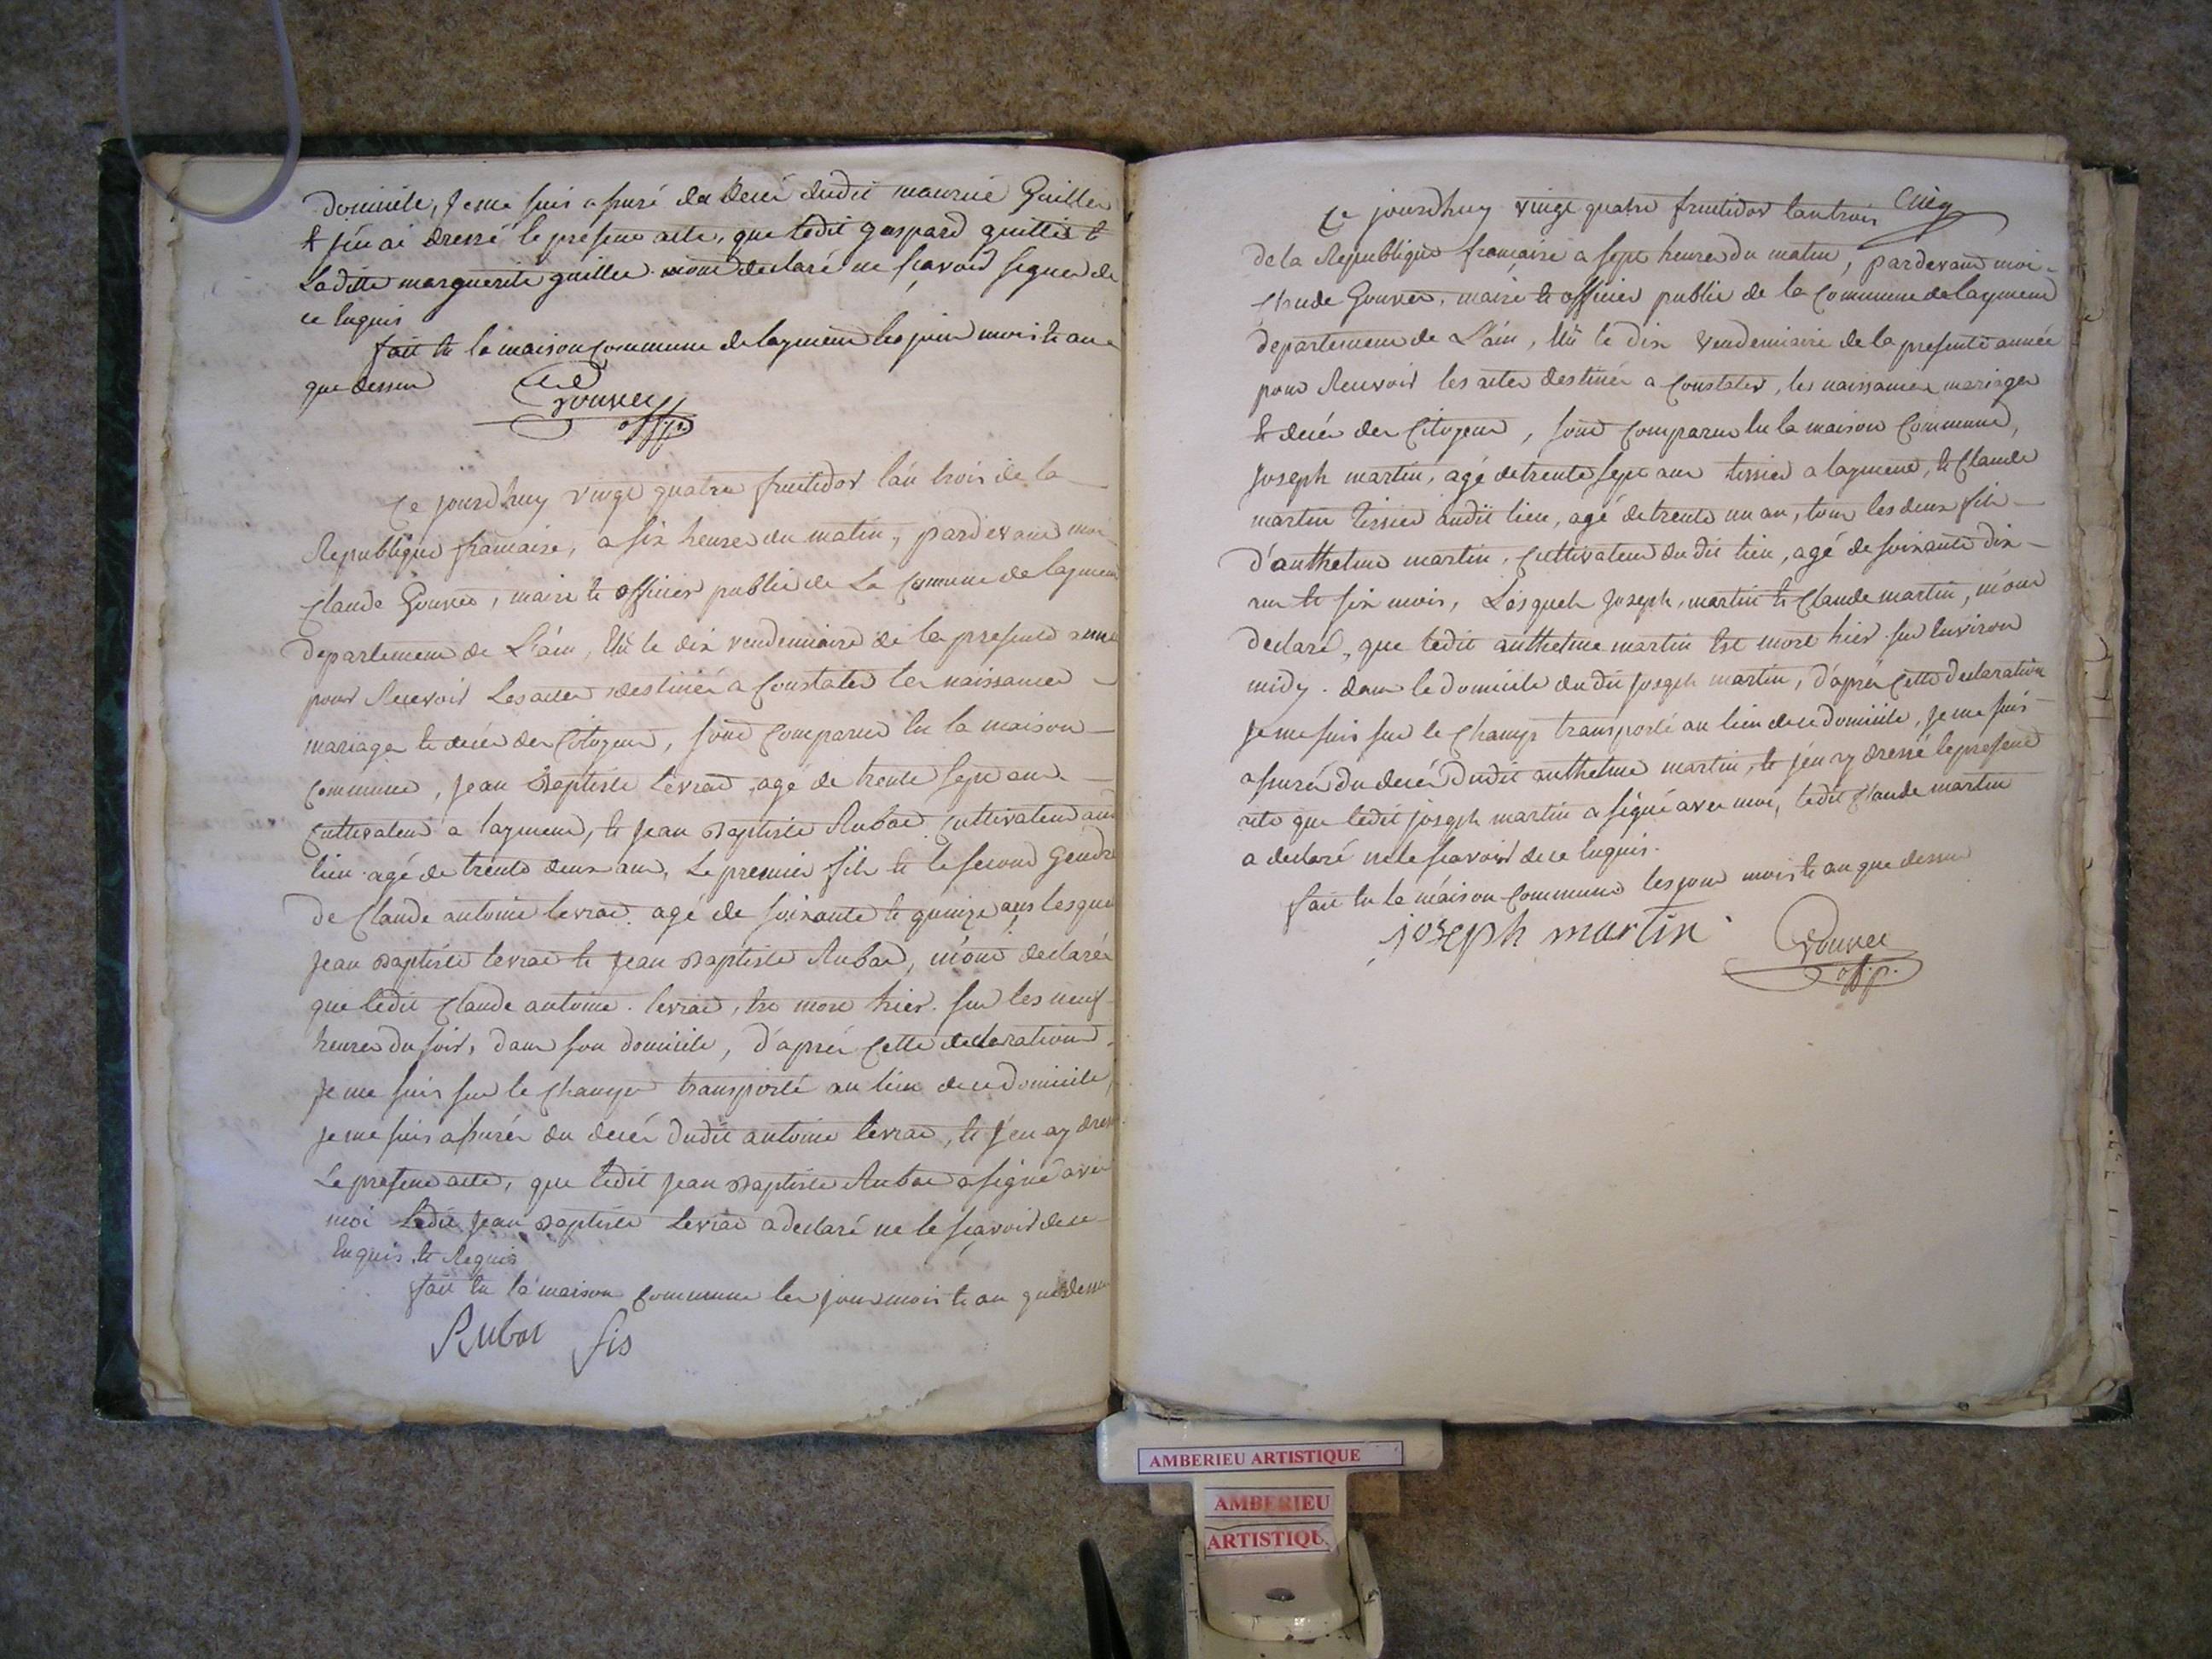 domicile, Je me suis assuré du decé dudit maurice Guillet
et j'en ai dressé le present acte, que ledit gaspard guillet et
Laditte marguerite guillet mont declaré ne sçavoir signer de
ce Enquis
fait En la maison commune de laymend les jour mois et an
que dessus
Gouvee
off. p.
Ce jourdhuy vingt quatre fruitidor l'an trois de la
Republique francaise, a six heures du matin, pardevant moi
Claude Gouvee, maire et officier public de La Commune de laymend
departement de L'ain, Elû le dix vendemiaire de la presente année
pour Recevoir Les actes destinés a Constater les naissances
mariages et decés des Citoyens, sont Comparus En la maison
Commune, Jean Baptiste Levrat, agé de trente sept ans
Cultivateur a laymend, et Jean Baptiste Rubat Cultivateur aud
lieu agé de trente deux ans, Le premier fils et le second Gendre
de Claude antoine levrat agé de soixante et quinze ans lesquel
Jean Baptiste levrat et Jean Baptiste Rubat, m'ont declarés
que ledit Claude antoine levrat, Est mort hier sur les neuf
heures du soir, dans son domicile, d'aprés Cette declaration
Je me suis sur le Champ transporté au lieu de ce domicile,
Je me suis assurér du decér dudit antoine levrat, et j'en ay dressé
Le present acte, que ledit Jean Baptiste Rubat a signé avec
moi Ledit Jean Baptiste Levrat a declaré ne le sçavoir de ce
Enquis et Requis
fait En la maison Commune les jour mois et an que dessus
Rubat fis
Cinq
Ce jourdhuy vingt quatre fruitidor lan trois
de la Republique francaise a sept heures du matin, pardevant moi
Claude Gouvee, maire et officier public de la Commune de laymend
departement de L'ain, Elû le dix Vendemiaire de la presente année
pour Recevoir les actes destinés a Constater, les naissances mariages
et decés des Citoyens, sont Comparus En la maison Commune,
Joseph martin, agé de trente sept ans tissier a laymend, et Claude
martin tissier audit lieu, agé de trente un an, tous les deux fils
d'anthelme martin, Cultivateur du dit lieu, agé de soixante dix
ans et six mois, Lesquels Joseph martin et Claude martin, m'ont
declaré, que ledit anthelme martin Est mort hier sur Environ
midy. dans le domicile du dit Joseph martin, d'aprés Cette declaration
Je me suis sur le Champ transporté au lieu de ce domicile, Je me suis
assurér du decér dudit anthelme martin, et j'en ay dressé le present
acte que ledit joseph martin a signé avec moi, ledit Claude martin
a declaré ne le sçavoir de ce Enquis.
fait En la maison Commune les jour mois et an que dessus
joseph martin
Gouvee
off. p.
AMBERIEU ARTISTIQUE
AMBERIEU
ARTISTIQU